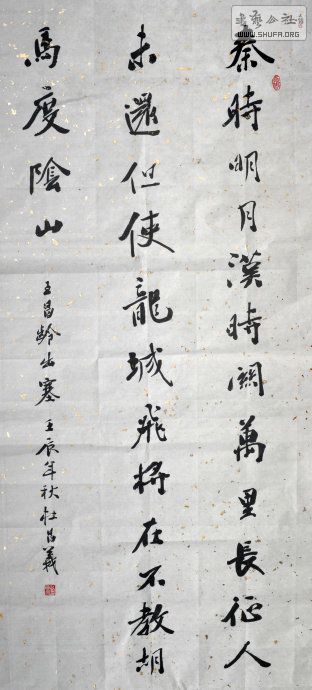 秦時明月漢時關萬里長征人
未還但使龍城飛將在不教胡
馬度陰山
王昌齡出塞 壬辰年秋杜昌義
書藝公社
WWW.SHUFA.ORG